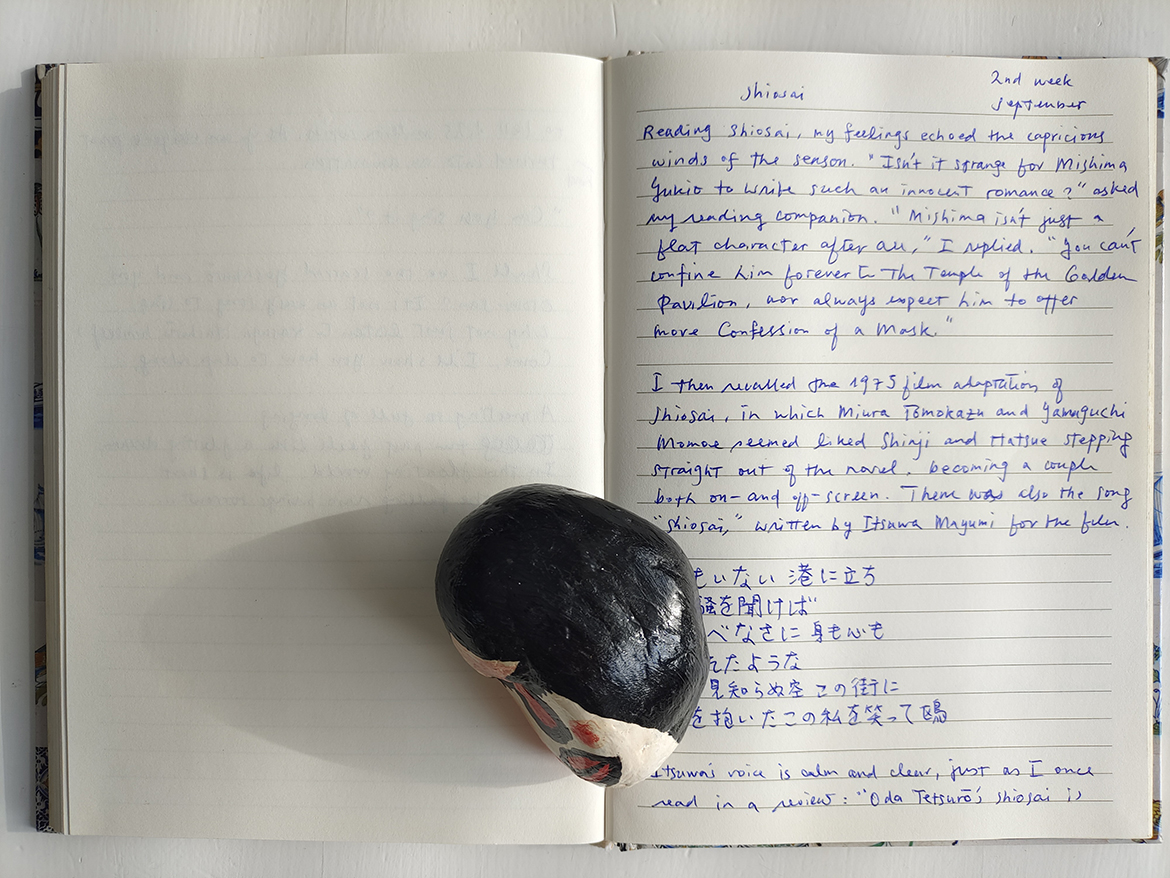 Shiosai
2nd week
September
Reading Shiosai, my feelings echoed the capricious
winds of the season. "Isn't it strange for Mishima
Yukio to write such an innocent romance?" asked
my reading companion. "Mishima isn't just a
flat character after all," I replied. "You can't
confine him forever to The Temple of the Golden
Pavilion, nor always expect him to offer
more Confession of a Mask."
I then recalled the 1975 film adaptation of
Shiosai, in which Miura Tomokazu and Yamaguchi
Momoe seemed liked Shinji and Hatsue stepping
straight out of the novel, becoming a couple
both on- and off-screen. There was also the song
"Shiosai," written by Itsuwa Mayumi for the film.
もいない 港に立ち
騒を聞けば
べなさに 身も心も
えたような
見知らぬ空 この街に
を抱いたこの私を笑って鴎
Itsuwa's voice is calm and clear, just as I once
read in a review: "Oda Tetsurō's Shiosai is